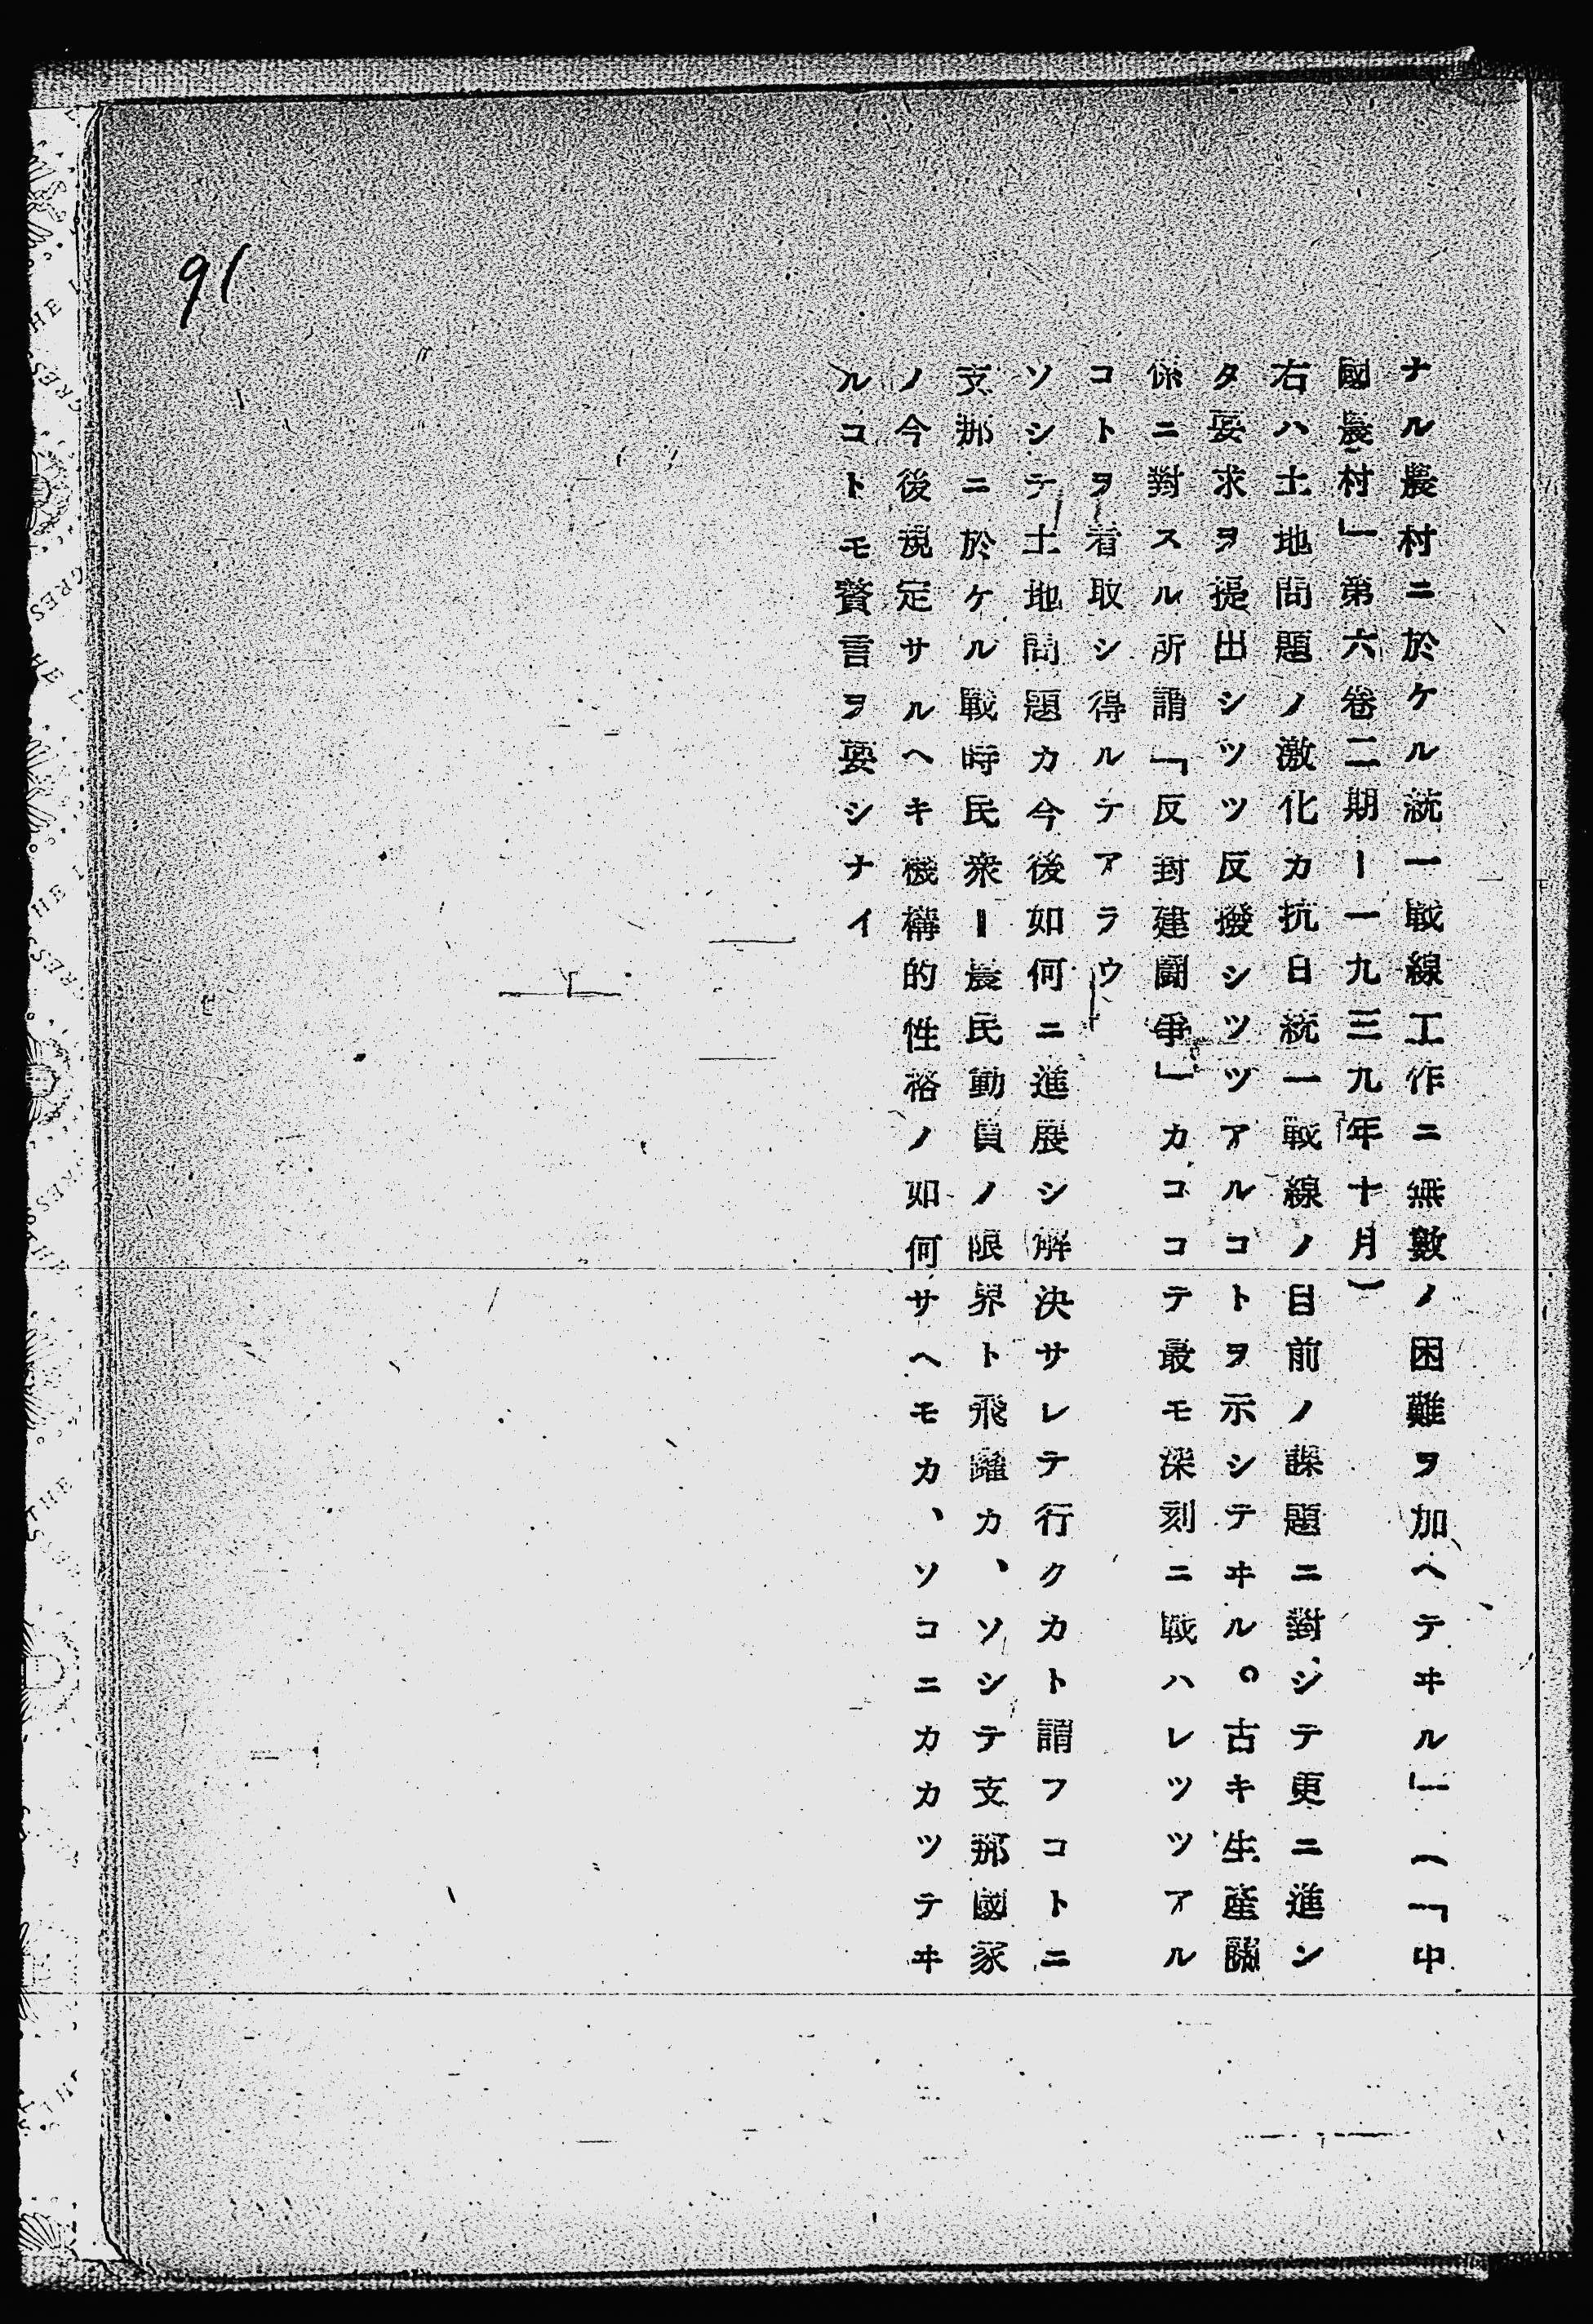 ナル農村ニ於ケル統一戰線工作ニ無數ノ困難ヲ加ヘテヰル」(「中
國農村」第六卷二期ー一九三九年十月)
右ハ土地問題ノ激化カ抗日統一戰線ノ目前ノ課題ニ對シテ更ニ進ン
タ要求ヲ提出シツツ反撥シツツアルコトヲ示シテヰル。古キ生產關
係ニ對スル所謂「反封建鬪爭」カココテ最モ深刻ニ戰ハレツツアル
コトヲ看取シ得ルテアラウ
ソシテ土地問題カ今後如何ニ進展シ解決サレテ行クカト謂フコトニ
支那ニ於ケル戰時民衆ー農民動員ノ限界ト飛躍カ、ソシテ支那國家
ノ今後規定サルヘキ機構的性格ノ如何サヘモカ、ソコニカカツテヰ
ルコトモ贅言ヲ要シナイ
91